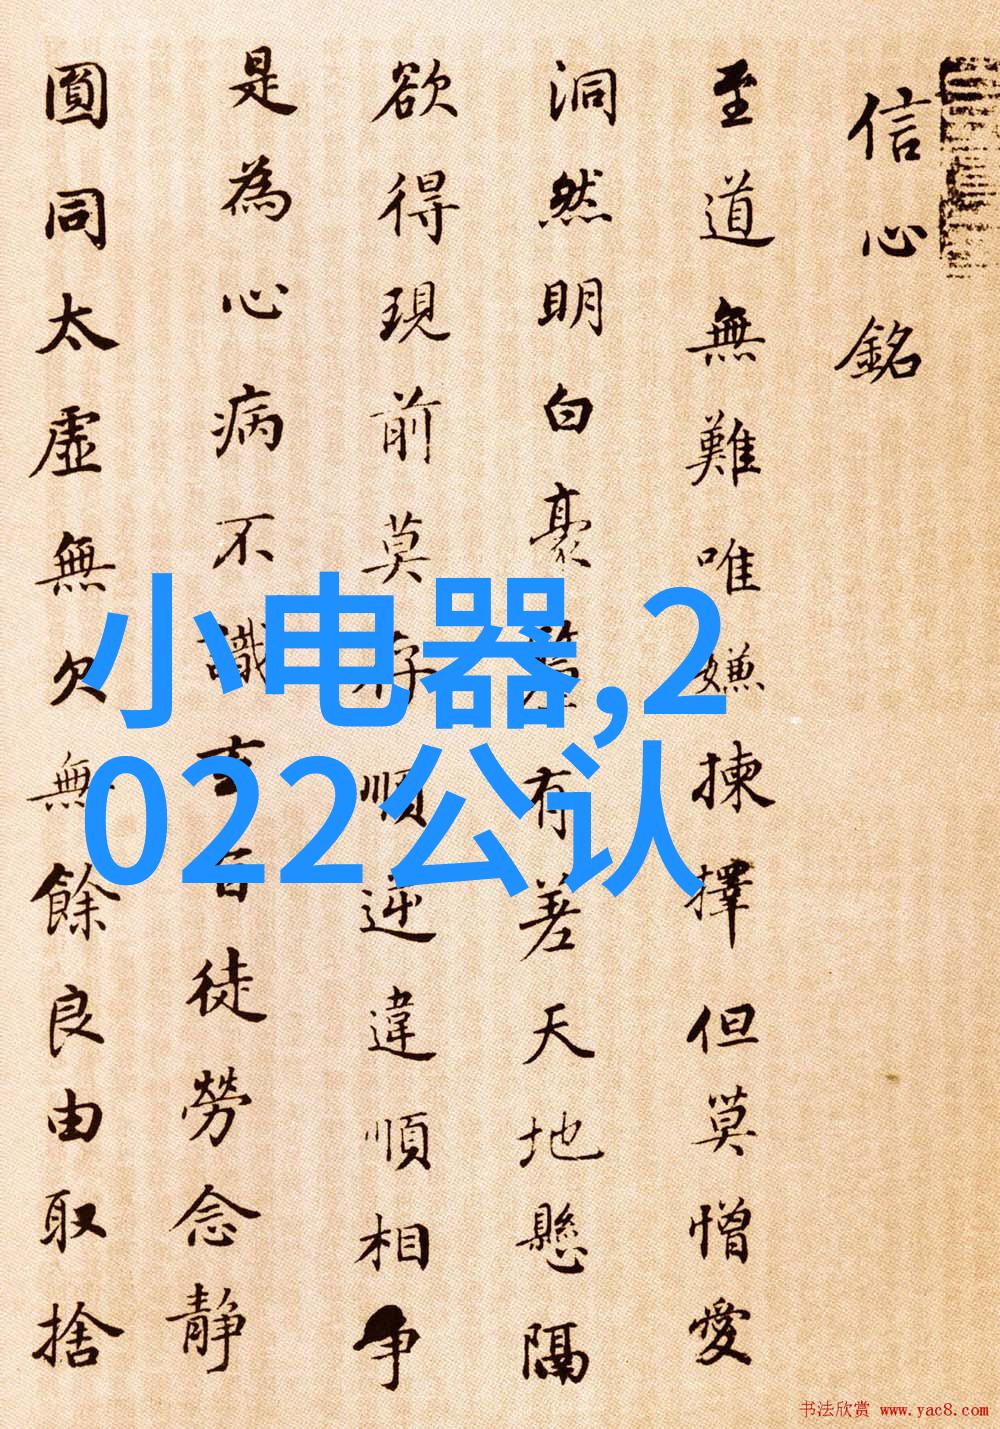 信心銘
至道無難唯嫌揀擇但莫憎愛
洞然明白豪有差天地懸隔
欲得現前莫存順逆違順相争
是為心病不識玄旨徒勞念静
圓同太虛無欠無餘良由取捨
小电器,2
022公认
书法欣赏 www.yac8.com